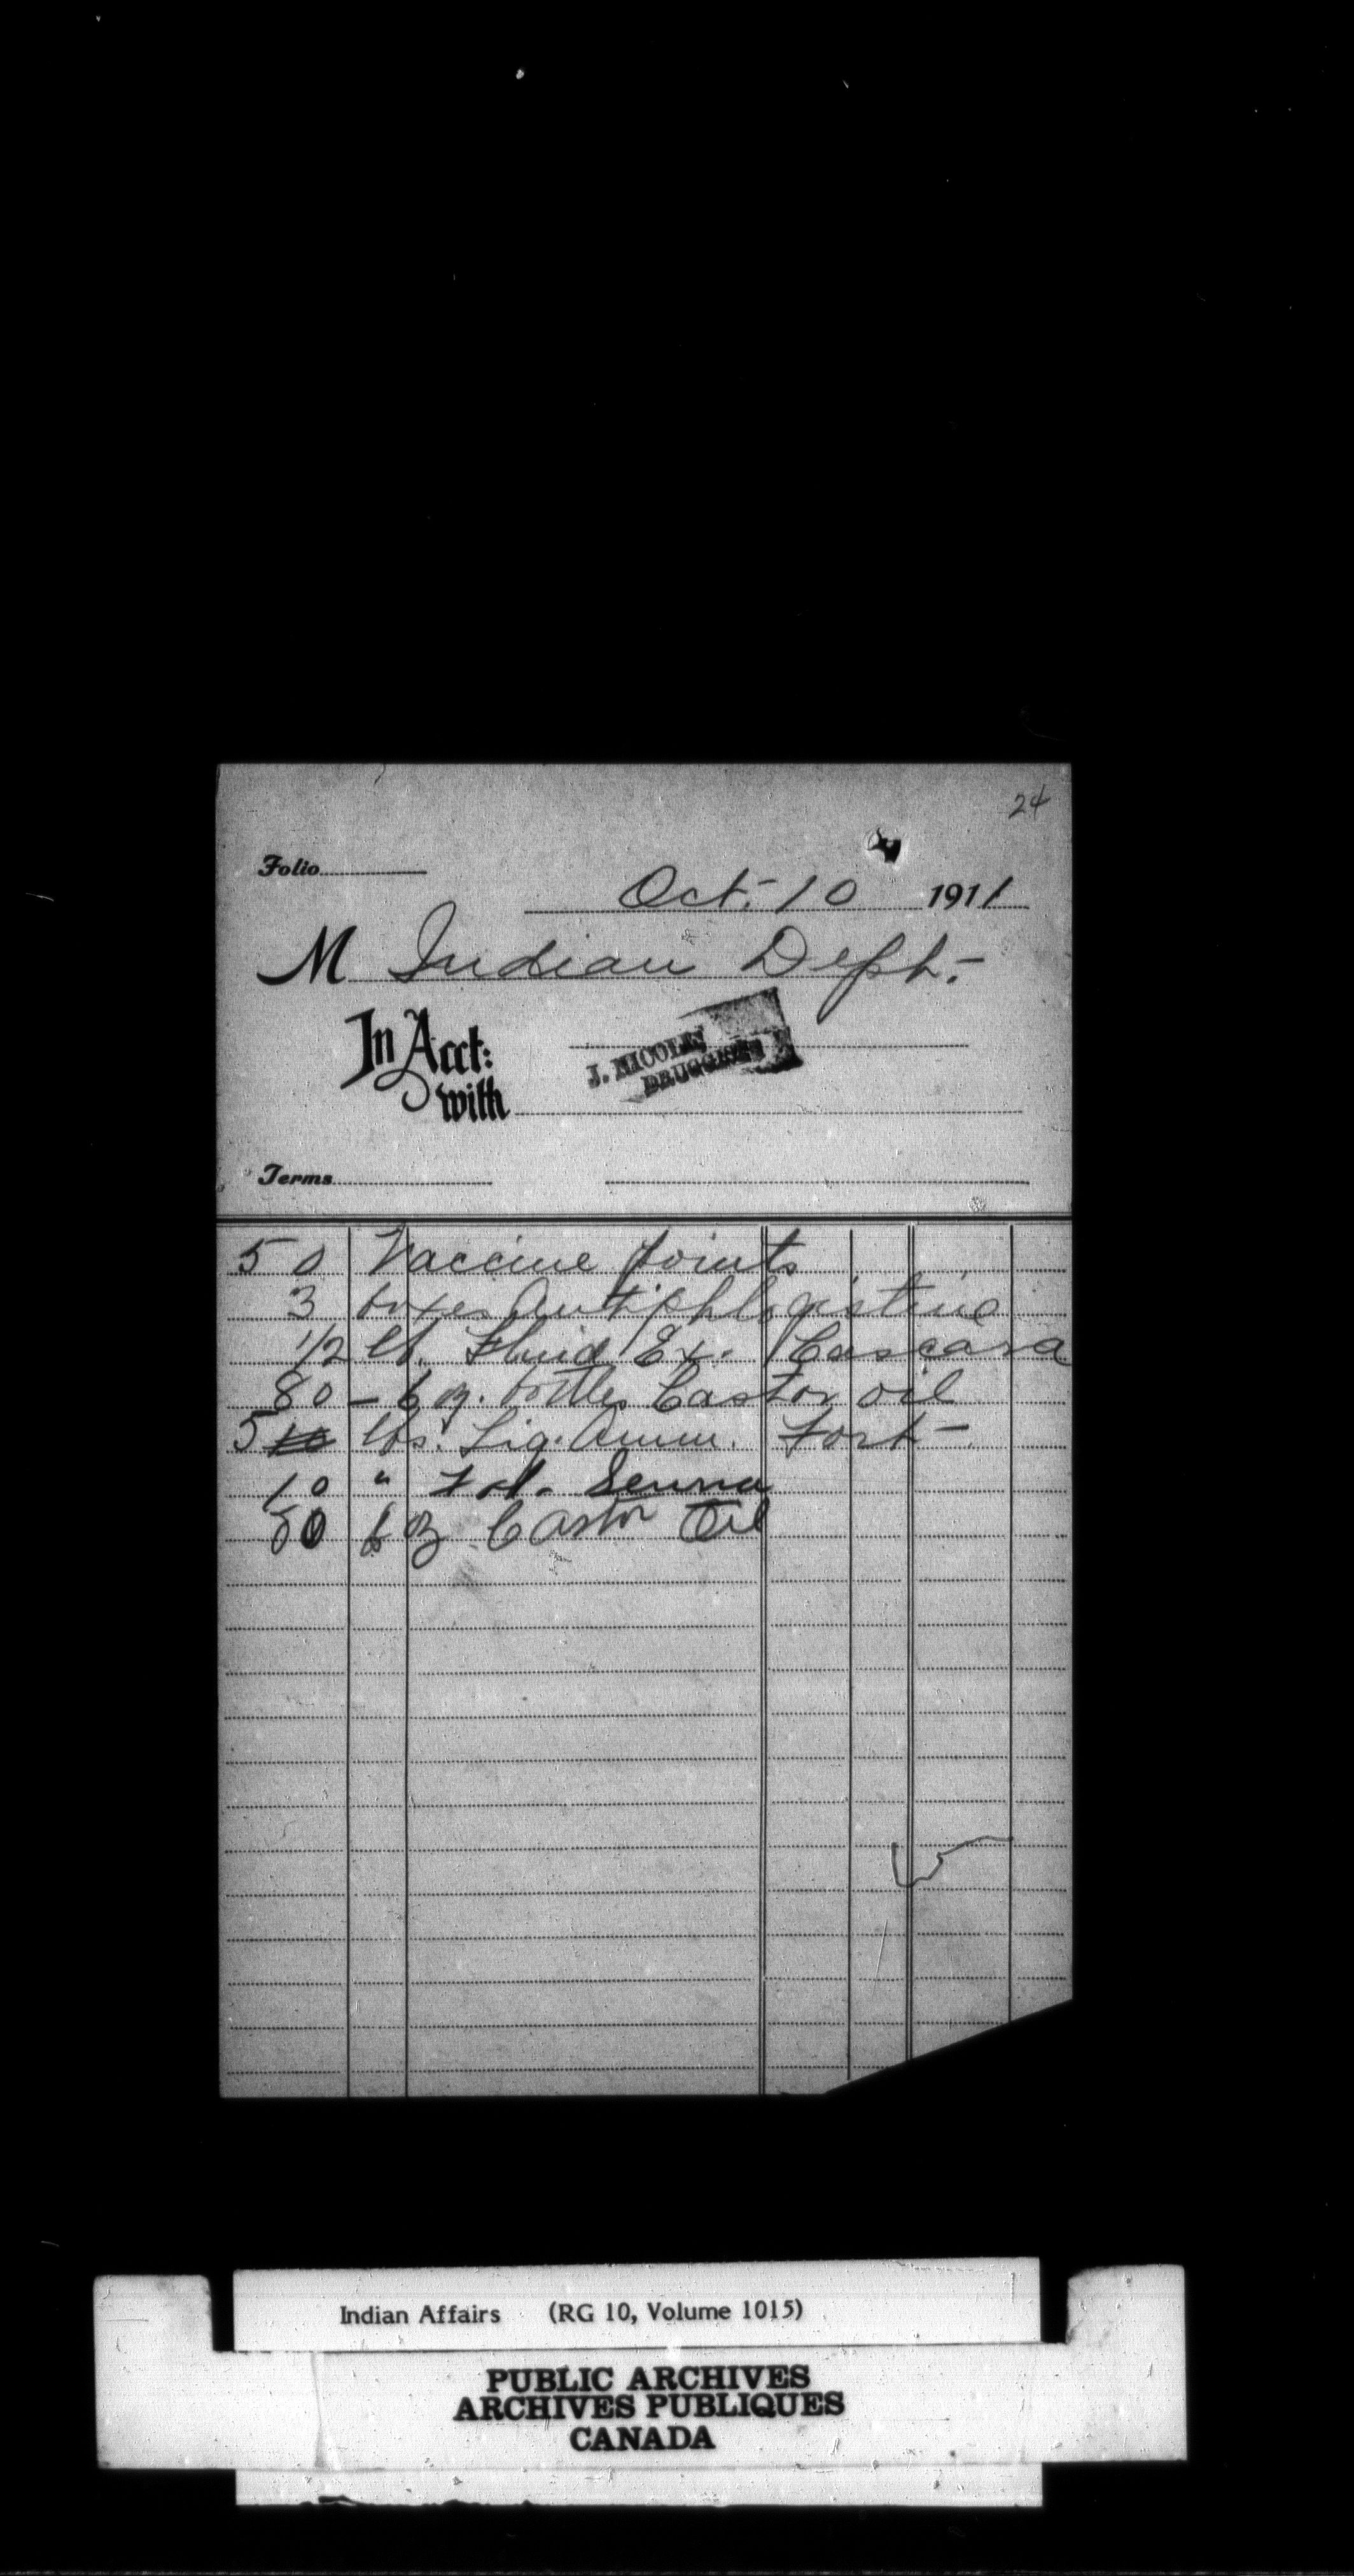 24
Folio
Oct. 10 1911
M Indian Dept.
In Acct:
with
J. NICOLE,
DRUGGIST
Terms
50 Vaccine points
3 boxes Antiphlogistine
1/2 lb. Fluid Ex. Cascara
80 - 6 oz. bottles Castor oil
5 10 lbs. Liq. Amm. Fort-
10 " Fol. Senna
80 6 oz Castor Oil
Indian Affairs (RG 10, Volume 1015)
PUBLIC ARCHIVES
ARCHIVES PUBLIQUES
CANADA